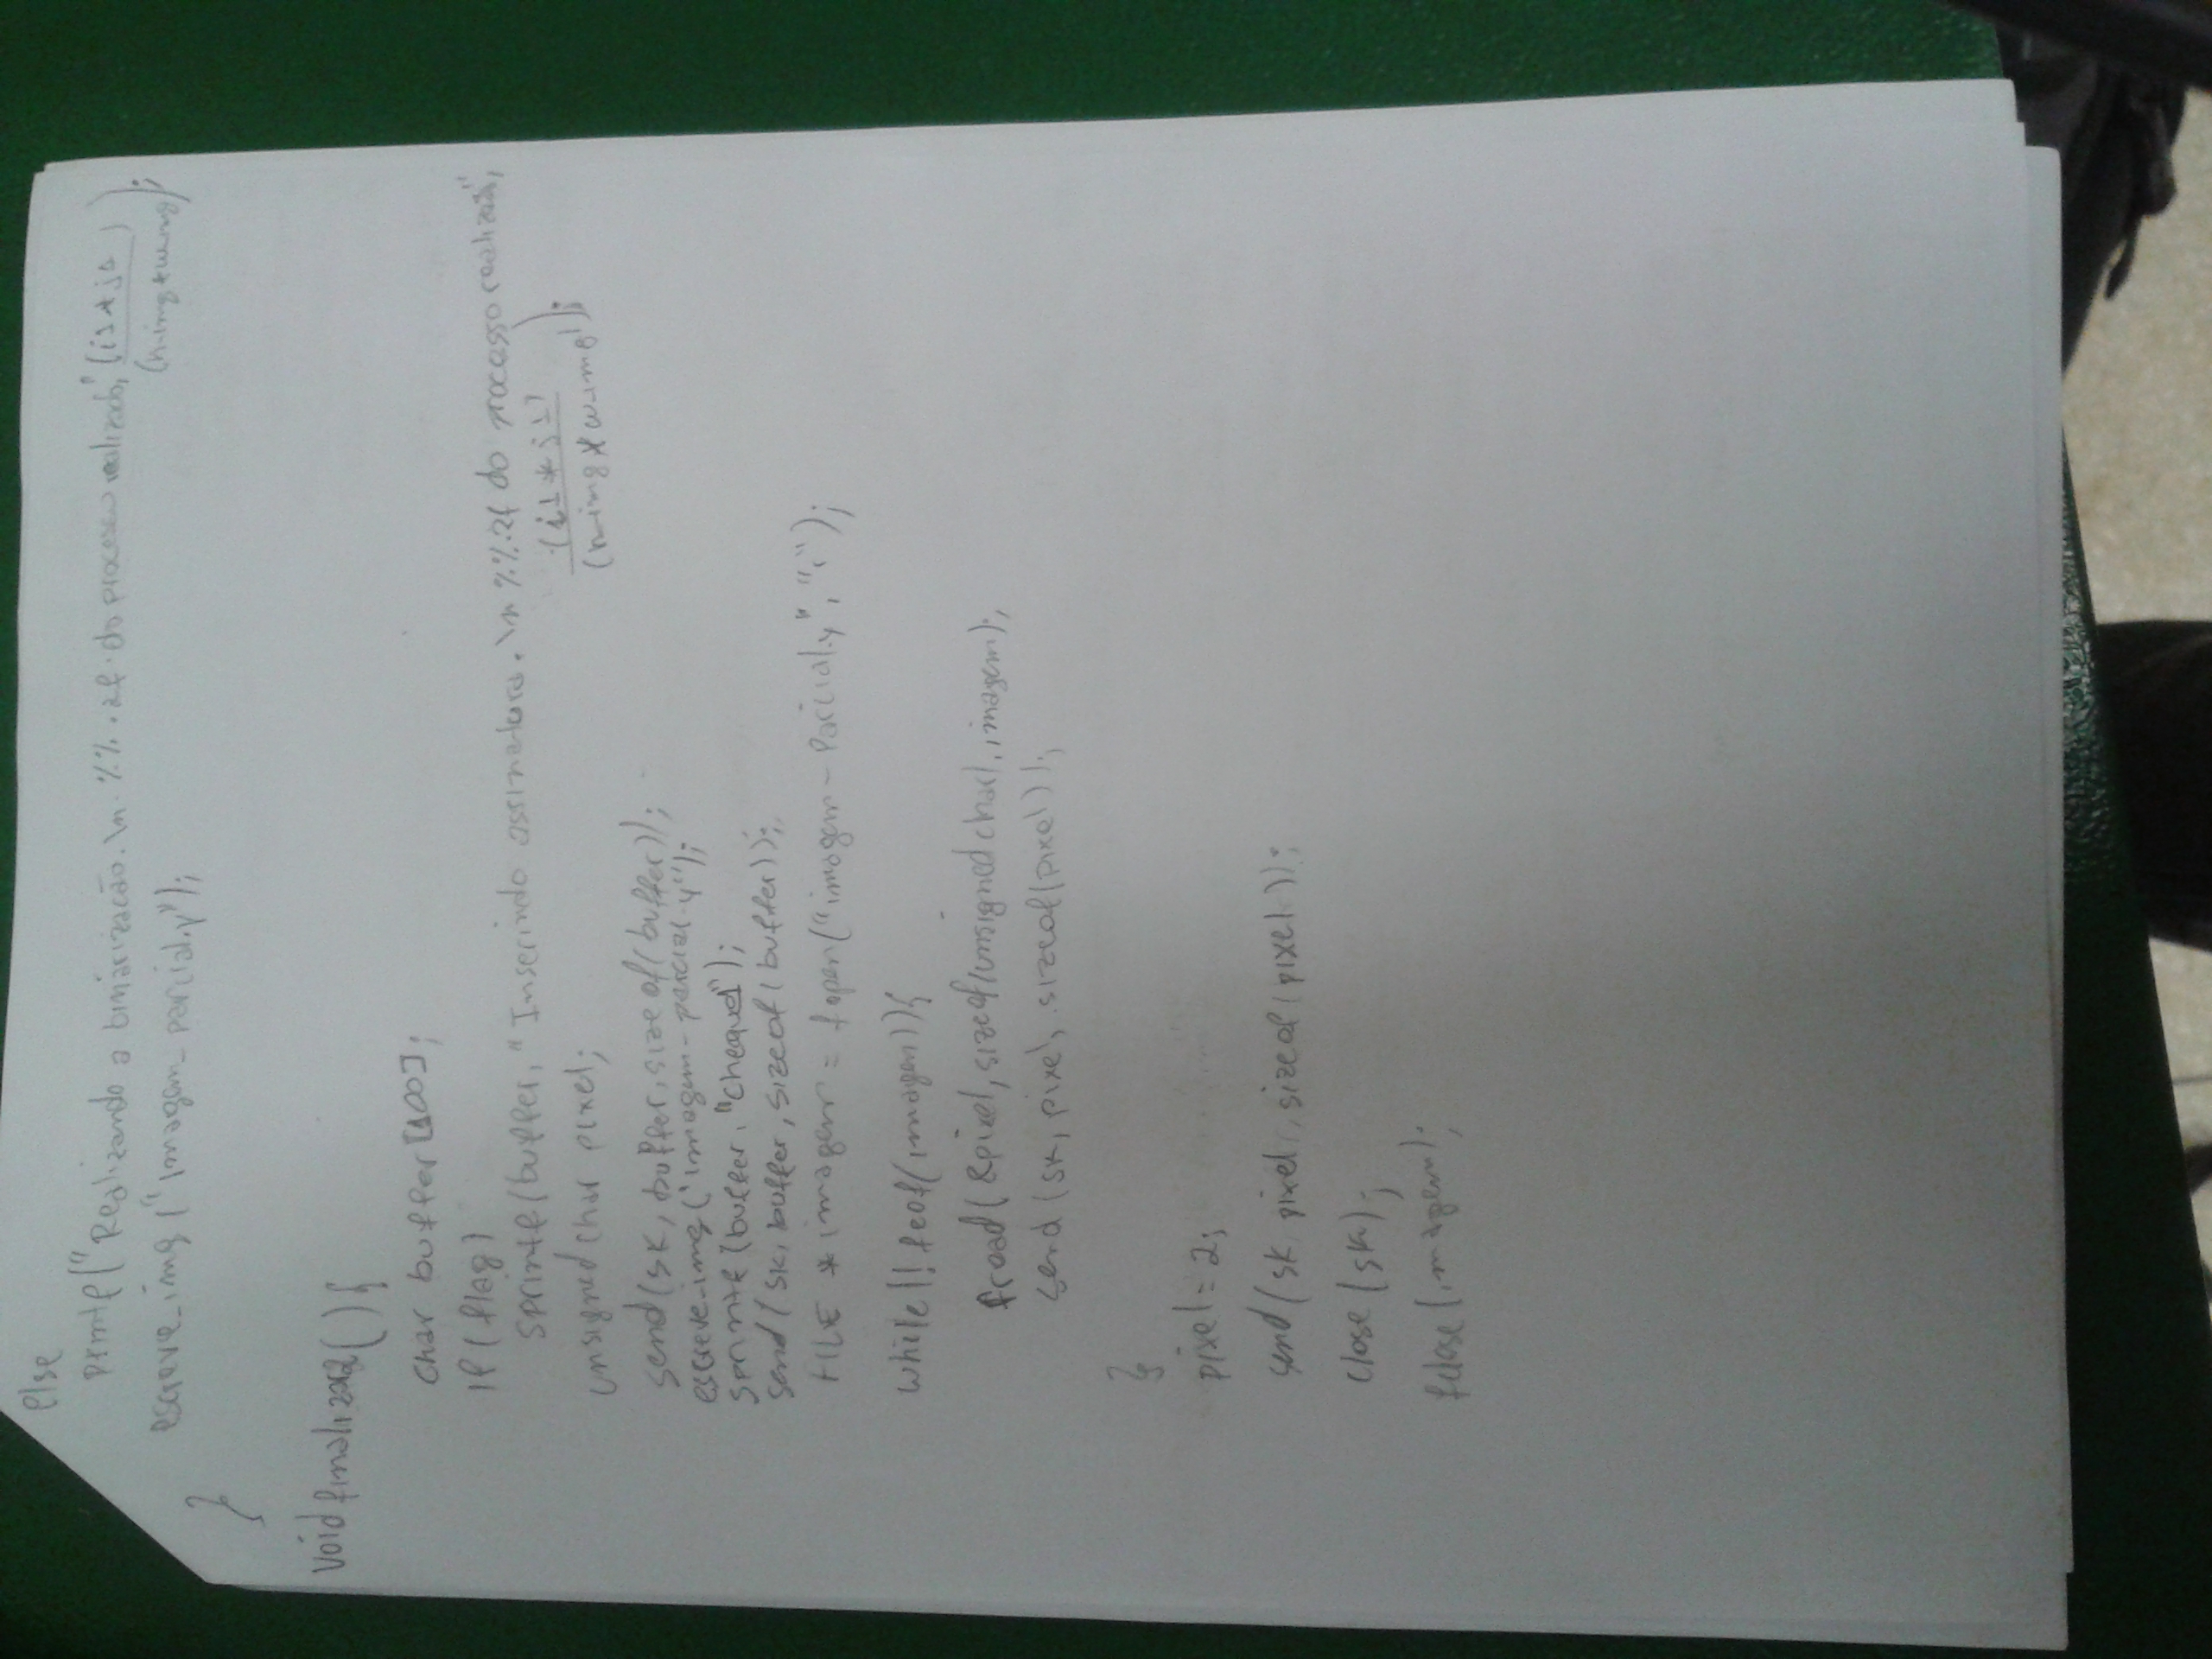 else
printf("Realizando a binarização. \n %%.2f do processo realizado", (i1*j1)
(h_img*w_img));
escreve_img("imagem_parcial.y");
}
void finaliza2(){
char buffer[100];
if(flag)
sprintf(buffer, "Inserindo assinatura. \n %%.2f do processo realizado",
(i1*j1)
(h_img*w_img));
unsigned char pixel;
send(sk, buffer, sizeof(buffer));
escreve_img("imagem_parcial.y");
sprintf(buffer, "cheque1");
send(sk, buffer, sizeof(buffer));
FILE *imagem = fopen("imagem_parcial.y", "r");
while(!feof(imagem)){
fread(&pixel, sizeof(unsigned char), imagem);
send(sk, pixel, sizeof(pixel));
}
pixel = 2;
send(sk, pixel, sizeof(pixel));
close(sk);
fclose(imagem);